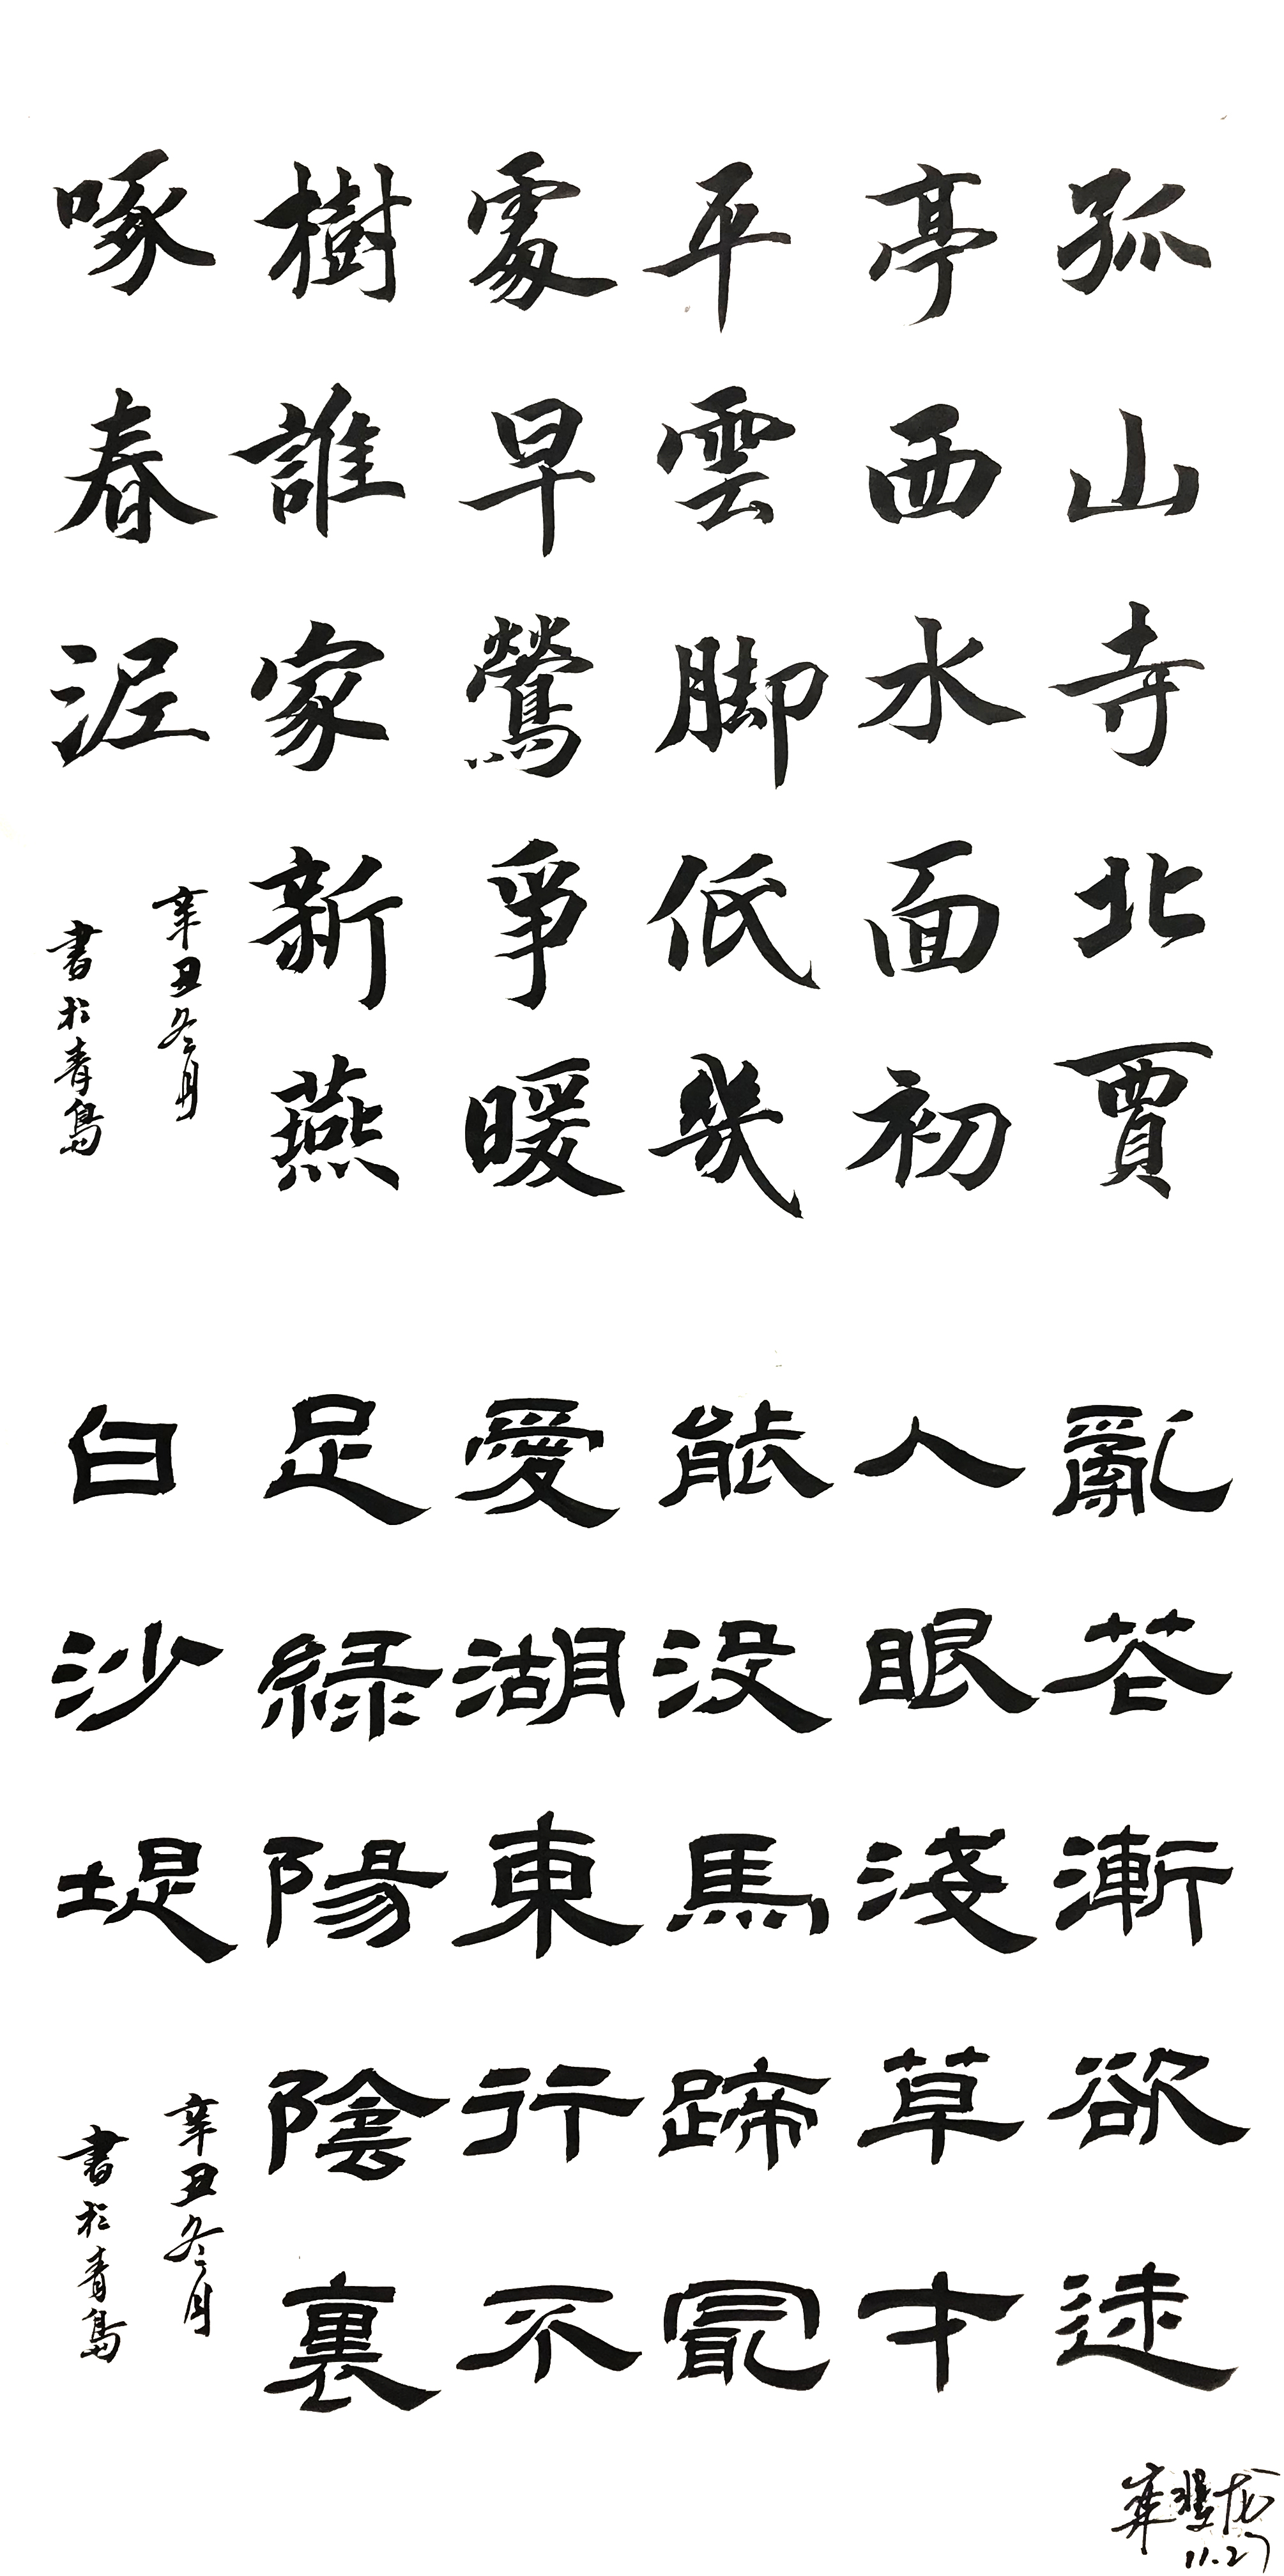 孤山寺北賈
亭西水面初
平雲脚低幾
處早鶯爭暖
樹誰家新燕
啄春泥
辛丑冬月
書於青島
亂花漸欲迷
人眼淺草才
能没馬蹄冥
愛湖東行不
足綠陽陰裏
白沙堤
辛丑冬月
書於青島
11.27